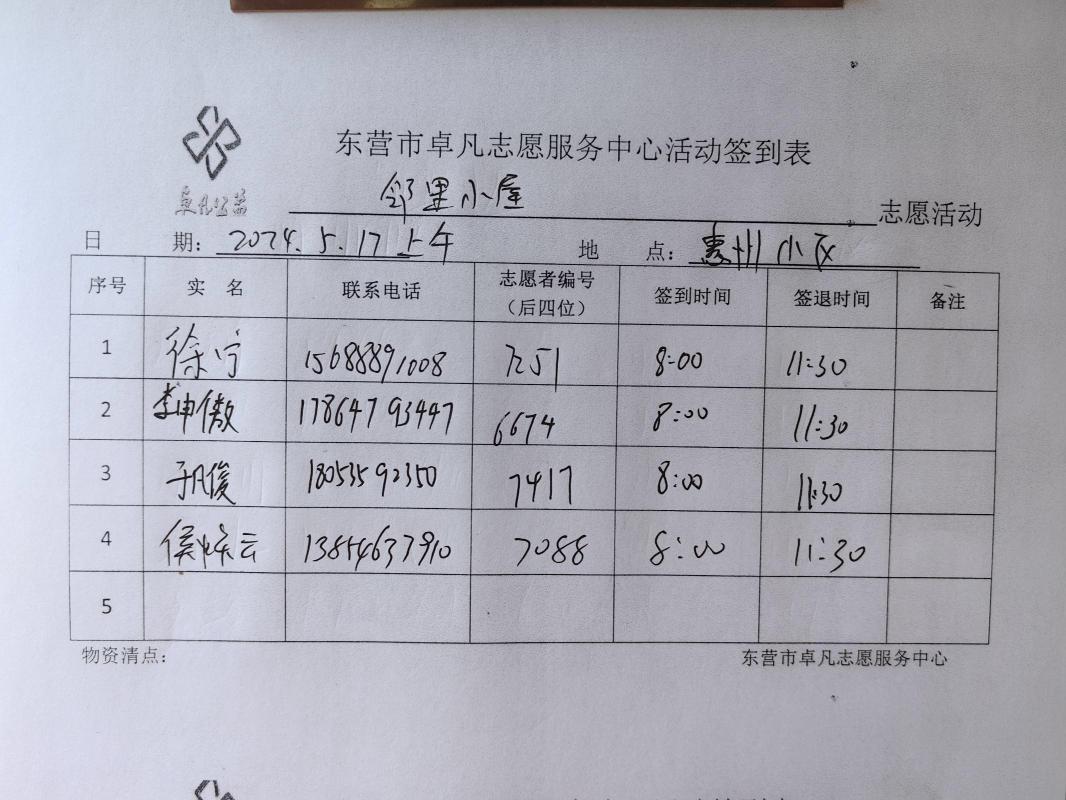 东营市卓凡志愿服务中心活动签到表
卓凡公益
邻里小屋 志愿活动
日 期: 2024.5.17上午 地 点: 惠州小区
序号 实 名 联系电话 志愿者编号(后四位) 签到时间 签退时间 备注
1 徐宁 15688891008 7251 8:00 11:30
2 李申傲 17864793447 6674 8:00 11:30
3 于凡俊 18053592350 7417 8:00 11:30
4 侯 云 13854637910 7088 8:00 11:30
5
物资清点: 东营市卓凡志愿服务中心